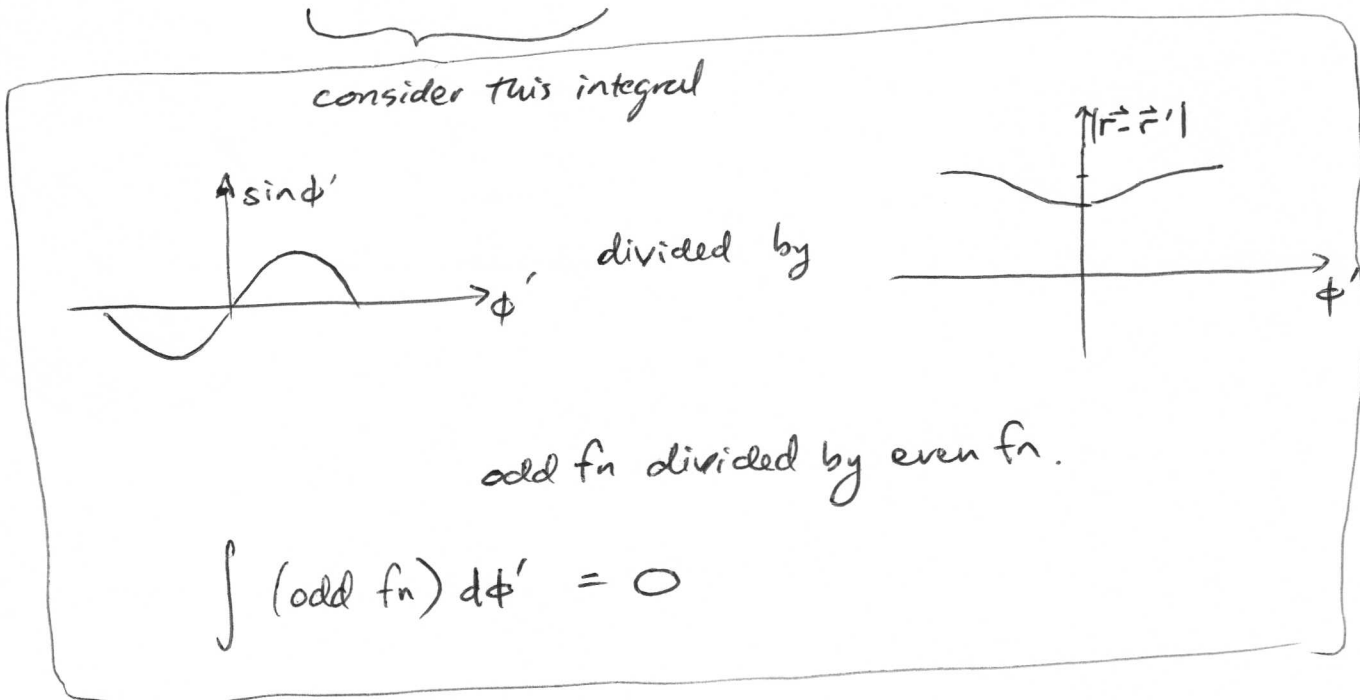 consider this integral
sinφ'
φ'
divided by
|r⃗-r⃗'|
φ'
odd fn divided by even fn.
∫ (odd fn) dφ' = 0